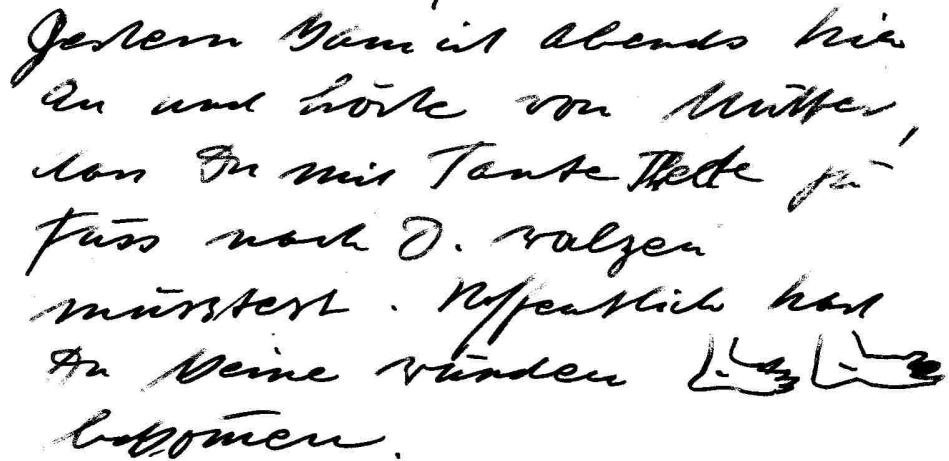 Gestern kam ich abends hier
an und hörte von Mutter,
dass Du mit Tante Thete zu
Fuss nach J. walzen
musstest. Hoffentlich hast
Du keine wunden
bekommen.